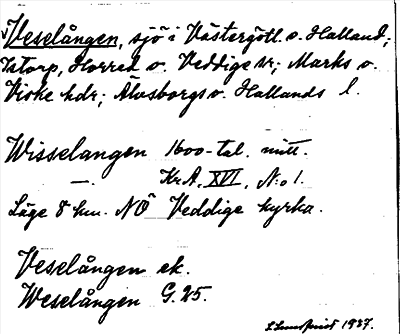 Veselången, sjö i Västergötl. o. Halland;
Istorp, Horred o. Veddige sr; Marks o.
Viske hdr; Älvsborgs o. Hallands l.
Wisselangen 1600-tal. mitt.
—. Kr.A. XVI, N:o 1.
Läge 8 km. NÖ Veddige kyrka.
Veselången ek.
Weselången G. 25.
S Lundquist 1937.